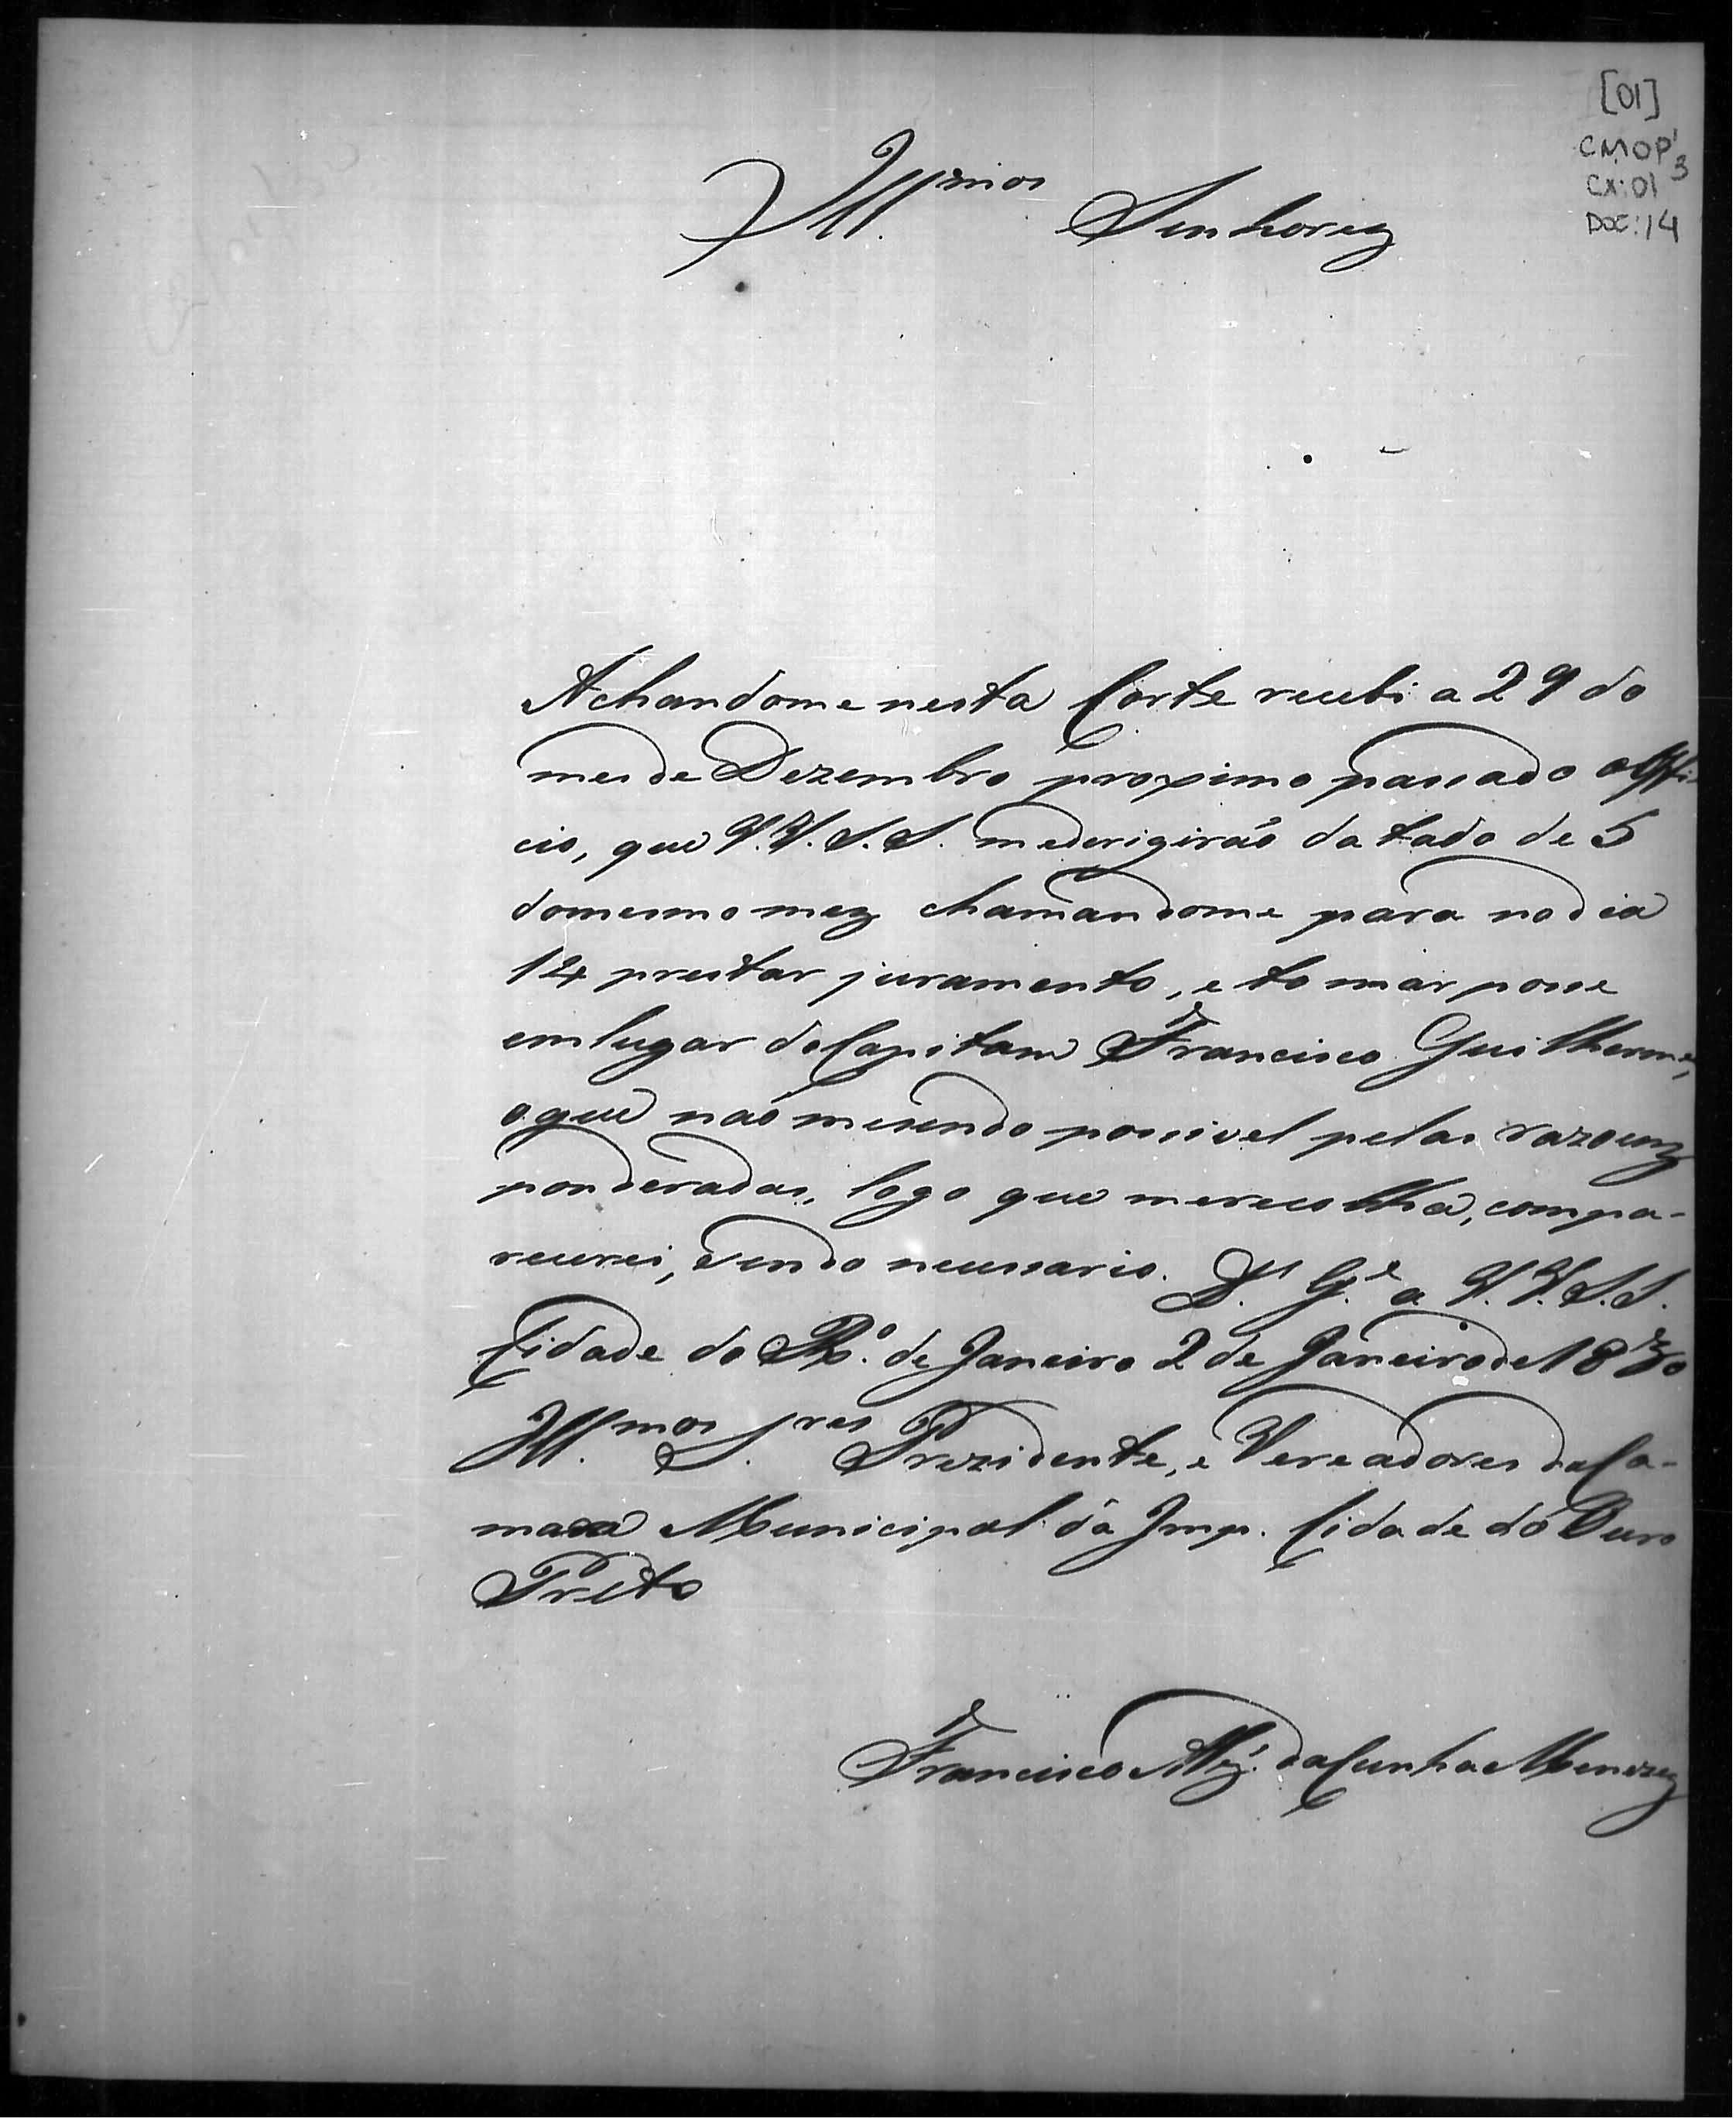 [01]
CMOP 3
CX: 01
DOC: 14
Ill.mos Senhorez
Achandome nesta Corte recebi a 29 do
mes de Dezembro proximo passado o Offi-
cio, que V.V.S.S. mederigirão datado de 5
domesmo mez chamandome para no dia
14 prestar juramento, e tomar posse
emlugar do Capitam Francisco Guilherme,
oque não mesendo possivel pelas razoens
ponderadas, logo que merecolha, compa-
recerei, sendo necessario. D.s G.e a V.V.S.S.
Cidade do R.o de Janeiro 2 de Janeiro de 1830
Ill.mos S.res Prezidente, e Vereadores da Ca-
mara Municipal da Imp. Cidade do Ouro
Preto
Francisco da Cunha Menezez